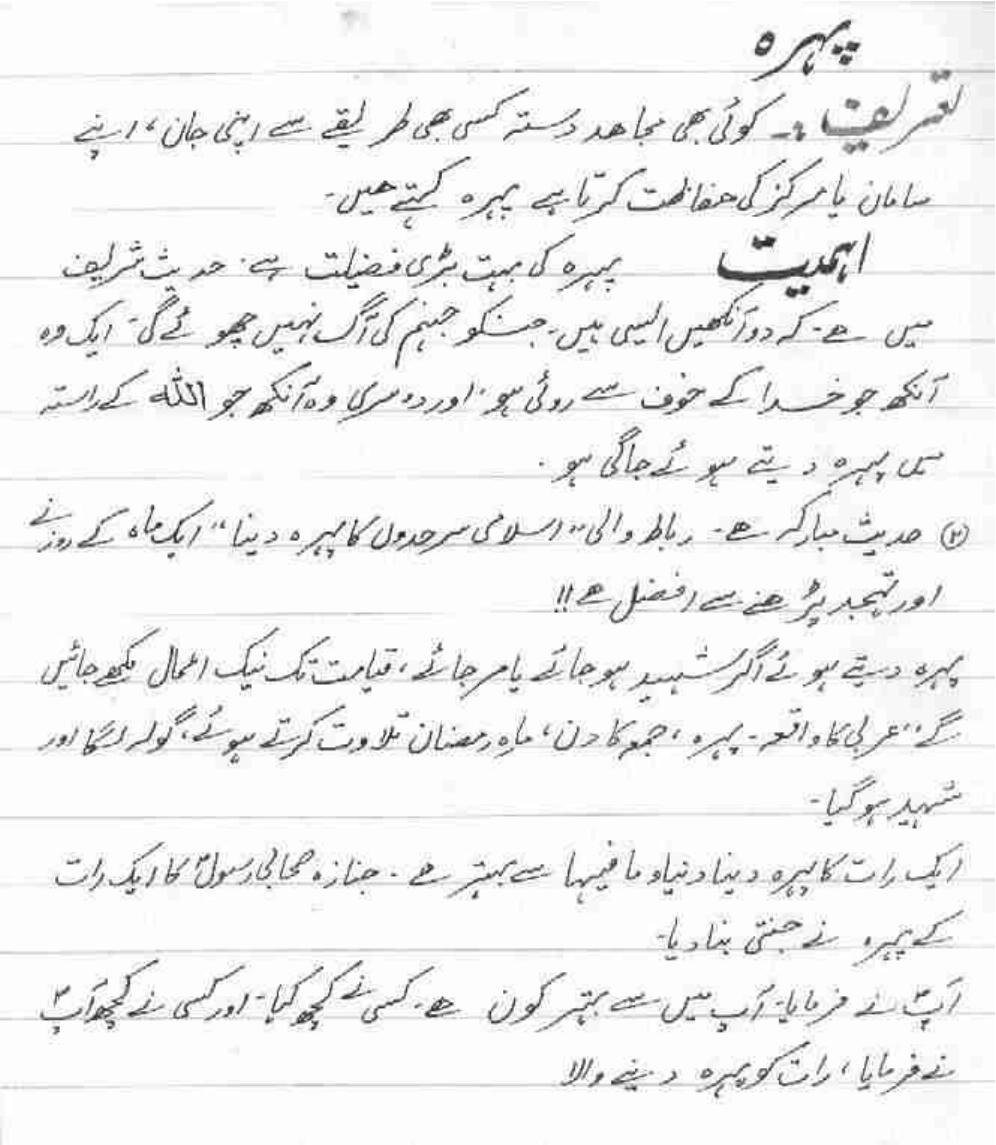 پہرہ
تعریف :۔ کوئی بھی مجاھد دستہ کسی بھی طریقے سے اپنی جان، اپنے
سامان یا مرکز کی حفاظت کرتا ہے پہرہ کہتے ھیں۔
اہمیت پہرہ کی بہت بڑی فضیلت ہے۔ حدیث شریف
میں ھے۔ کہ دو آنکھیں ایسی ہیں۔ جسکو جہنم کی آگ نہیں چھوئے گی۔ ایک وہ
آنکھ جو خدا کے خوف سے روئی ہو۔ اور دوسری وہ آنکھ جو اللہ کے راستہ
میں پہرہ دیتے ہوئے جاگی ہو۔
(۲) حدیث مبارکہ ھے۔ رباط والی "اسلامی سرحدوں کا پہرہ دینا" ایک ماہ کے روزے
اور تہجد پڑھنے سے افضل ھے!!
پہرہ دیتے ہوئے اگر شہید ہو جائے یا مر جائے، قیامت تک نیک اعمال لکھے جائیں
گے، عربی کا واقعہ۔ پہرہ، جمعہ کا دن، ماہِ رمضان تلاوت کرتے ہوئے، گولہ لگا اور
شہید ہو گیا۔
ایک رات کا پہرہ دینا دنیا و ما فیہا سے بہتر ھے۔ جنازہ صحابی رسولؐ کا ایک رات
کے پہرہ نے جنتی بنا دیا۔
آپؐ نے فرمایا۔ آپ میں سے بہتر کون ھے۔ کسی نے کچھ کہا۔ اور کسی نے کچھ آپؐ
نے فرمایا، رات کو پہرہ دینے والا